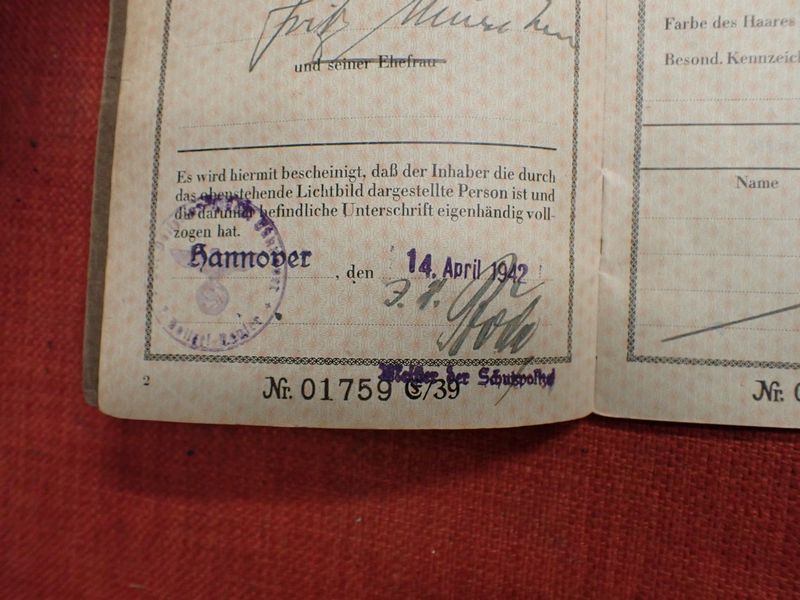 Fritz
und seiner Ehefrau
Es wird hiermit bescheinigt, daß der Inhaber die durch
das obenstehende Lichtbild dargestellte Person ist und
die darunter befindliche Unterschrift eigenhändig voll-
zogen hat.
Hannover, den 14. April 1942
Meister der Schutzpolizei
2
Nr. 01759 C/39
Farbe des Haares
Besond. Kennzeich
Name
Nr. 0